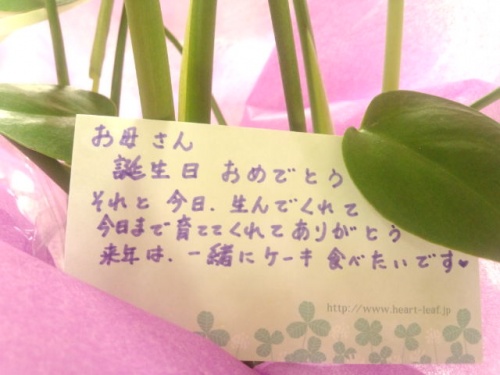 お母さん
誕生日 おめでとう
それと 今日、生んでくれて
今日まで育ててくれてありがとう
来年は、一緒にケーキ 食べたいです♥
http://www.heart-leaf.jp